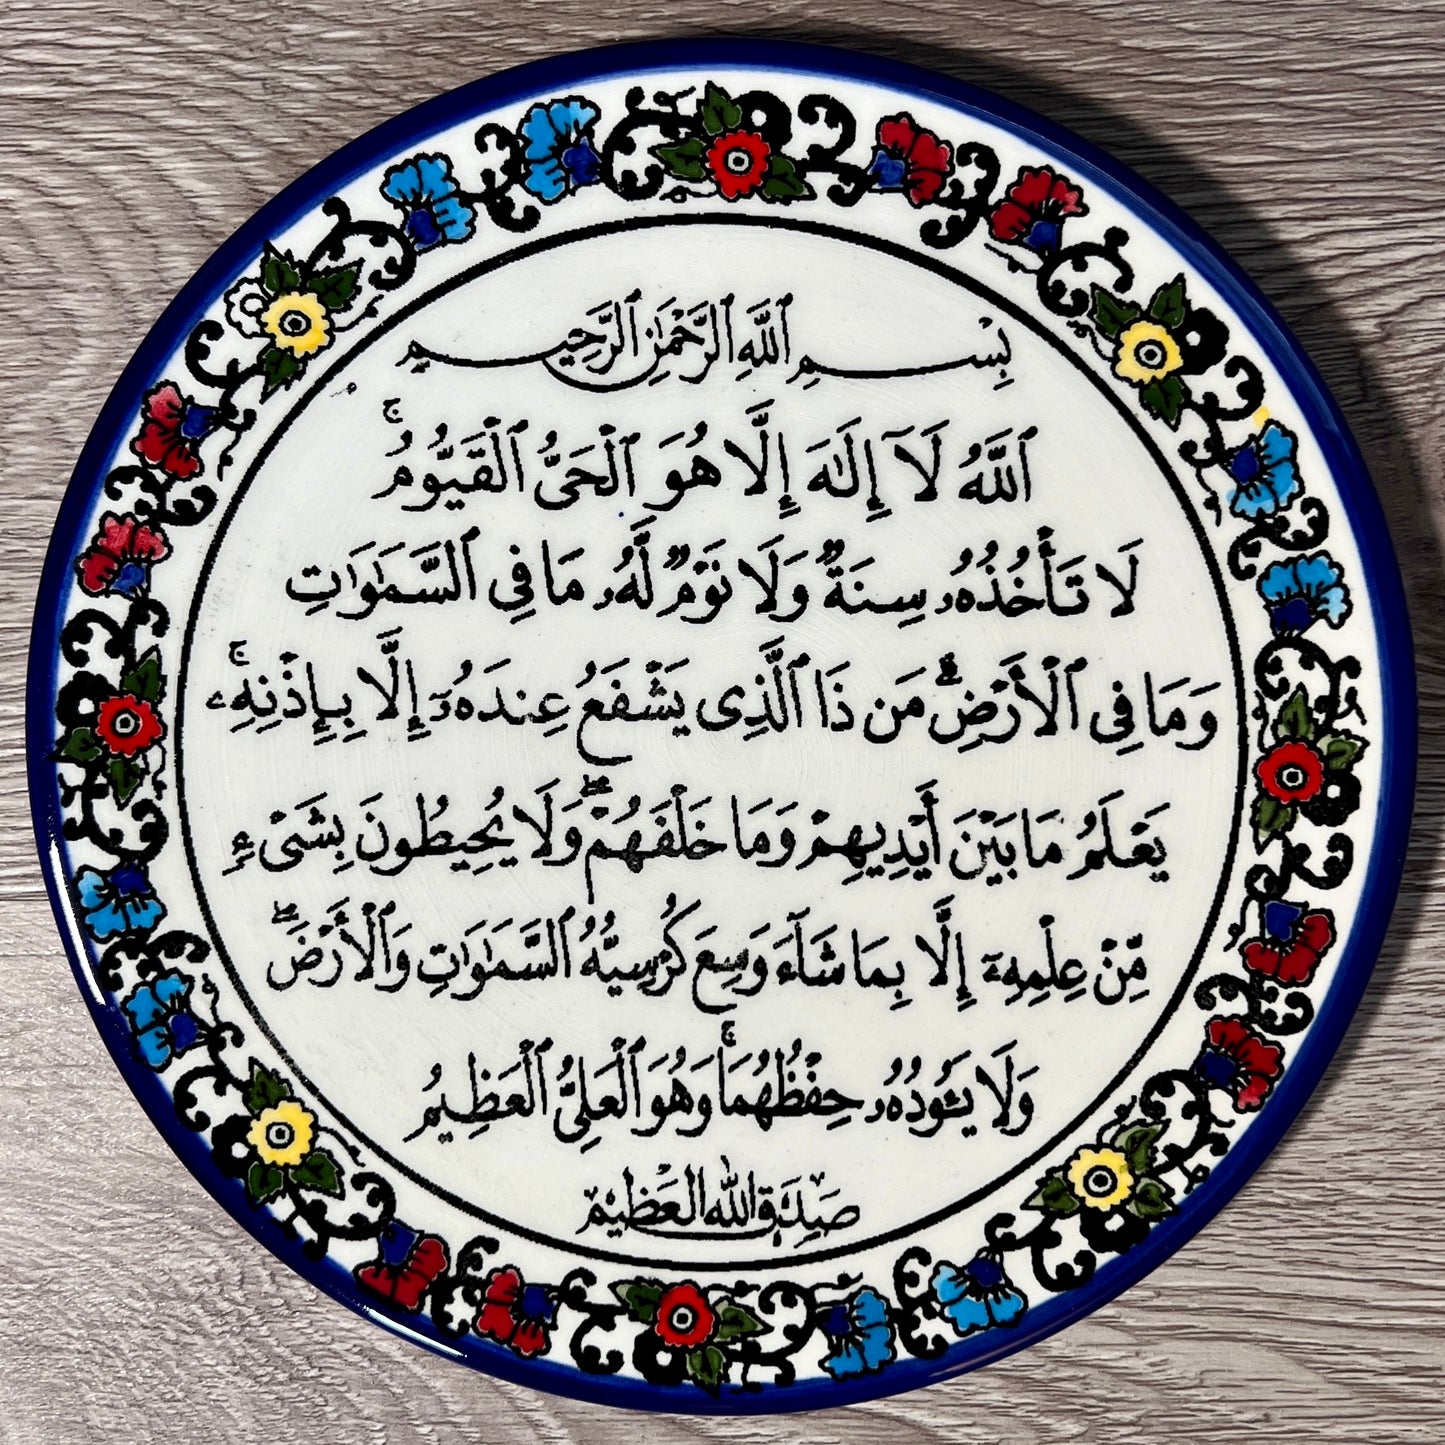 بِسْمِ ٱللَّهِ ٱلرَّحْمَٰنِ ٱلرَّحِيمِ
ٱللَّهُ لَآ إِلَٰهَ إِلَّا هُوَ ٱلْحَىُّ ٱلْقَيُّومُ ۚ
لَا تَأْخُذُهُۥ سِنَةٌ وَلَا نَوْمٌ لَّهُۥ مَا فِى ٱلسَّمَٰوَٰتِ
وَمَا فِى ٱلْأَرْضِ ۗ مَن ذَا ٱلَّذِى يَشْفَعُ عِندَهُۥٓ إِلَّا بِإِذْنِهِۦ ۚ
يَعْلَمُ مَا بَيْنَ أَيْدِيهِمْ وَمَا خَلْفَهُمْ ۖ وَلَا يُحِيطُونَ بِشَىْءٍ
مِّنْ عِلْمِهِۦٓ إِلَّا بِمَا شَآءَ وَسِعَ كُرْسِيُّهُ ٱلسَّمَٰوَٰتِ وَٱلْأَرْضَ ۖ
وَلَا يَـُٔودُهُۥ حِفْظُهُمَا ۚ وَهُوَ ٱلْعَلِىُّ ٱلْعَظِيمُ
صَدَقَ الله العَظِيْمْ